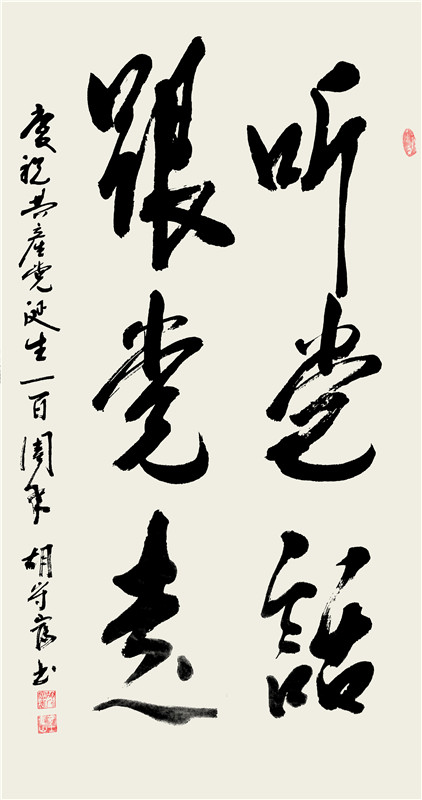 听党話
跟党走
庆祝共產党诞生一百周年 胡守富书